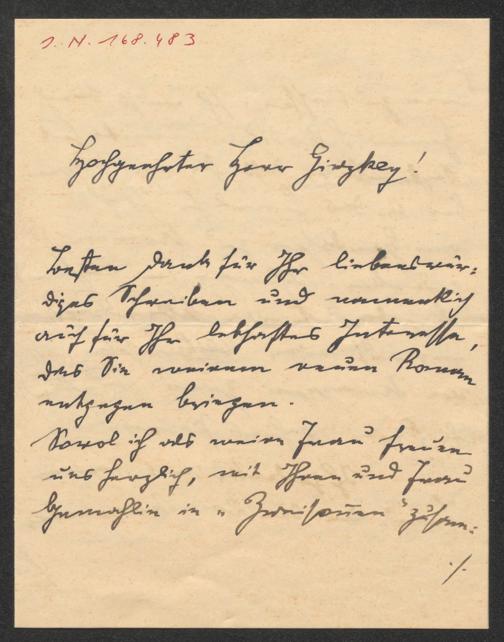 J. N. 168.483
Hochgeehrter Herr Ginzkey!
Besten Dank für Ihr liebenswür:
diges Schreiben und namentlich
auch für Ihr lebhaftes Interesse,
das Sie meinem neuen Roman
entgegen bringen.
Sowol ich als meine Frau freuen
uns herzlich, mit Ihnen und Frau
Gemahlin in „Zweisonnen“ zusam:
./.